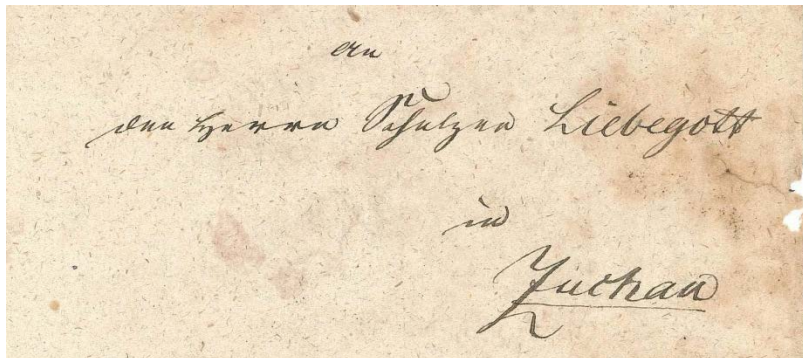 An
den Herrn Schulzen Liebegott
in
Zuchau